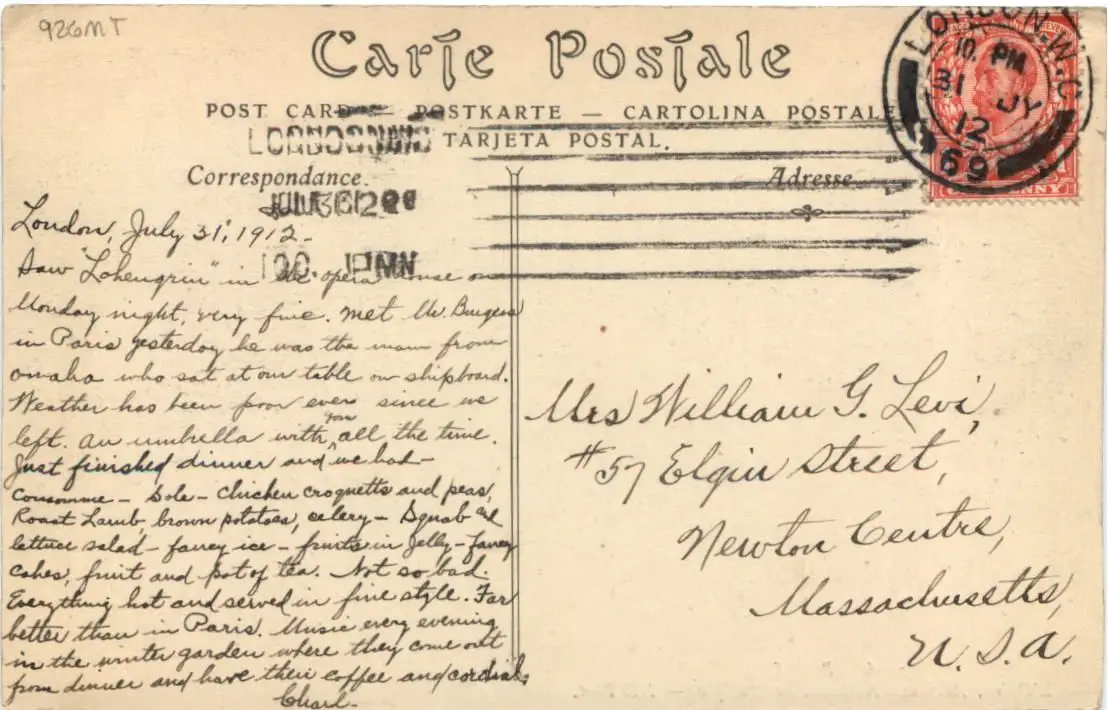 926MT
Carte Postale
POST CARD — POSTKARTE — CARTOLINA POSTALE
TARJETA POSTAL.
LONDON. W.C
10. PM
31 JY
12
69
PENNY
Correspondance.
Adresse
London, July 31, 1912.
Saw "Lohengrin" in the opera house on
Monday night, very fine. Met Mr. Burgess
in Paris yesterday he was the man from
Omaha who sat at our table on shipboard.
Weather has been poor ever since we
left. An umbrella with you all the time.
Just finished dinner and we had—
Consomme — Sole — Chicken croquetts and peas,
Roast Lamb, brown potatoes, celery — Squab and
lettuce salad — fancy ice — fruits in Jelly — fancy
cakes, fruit and pot of tea. Not so bad.
Everything hot and served in fine style. Far
better than in Paris. Music every evening
in the winter garden where they come out
from dinner and have their coffee and cordials.
Mrs William G. Levi,
#57 Elgin Street,
Newton Centre,
Massachusetts,
U.S.A.